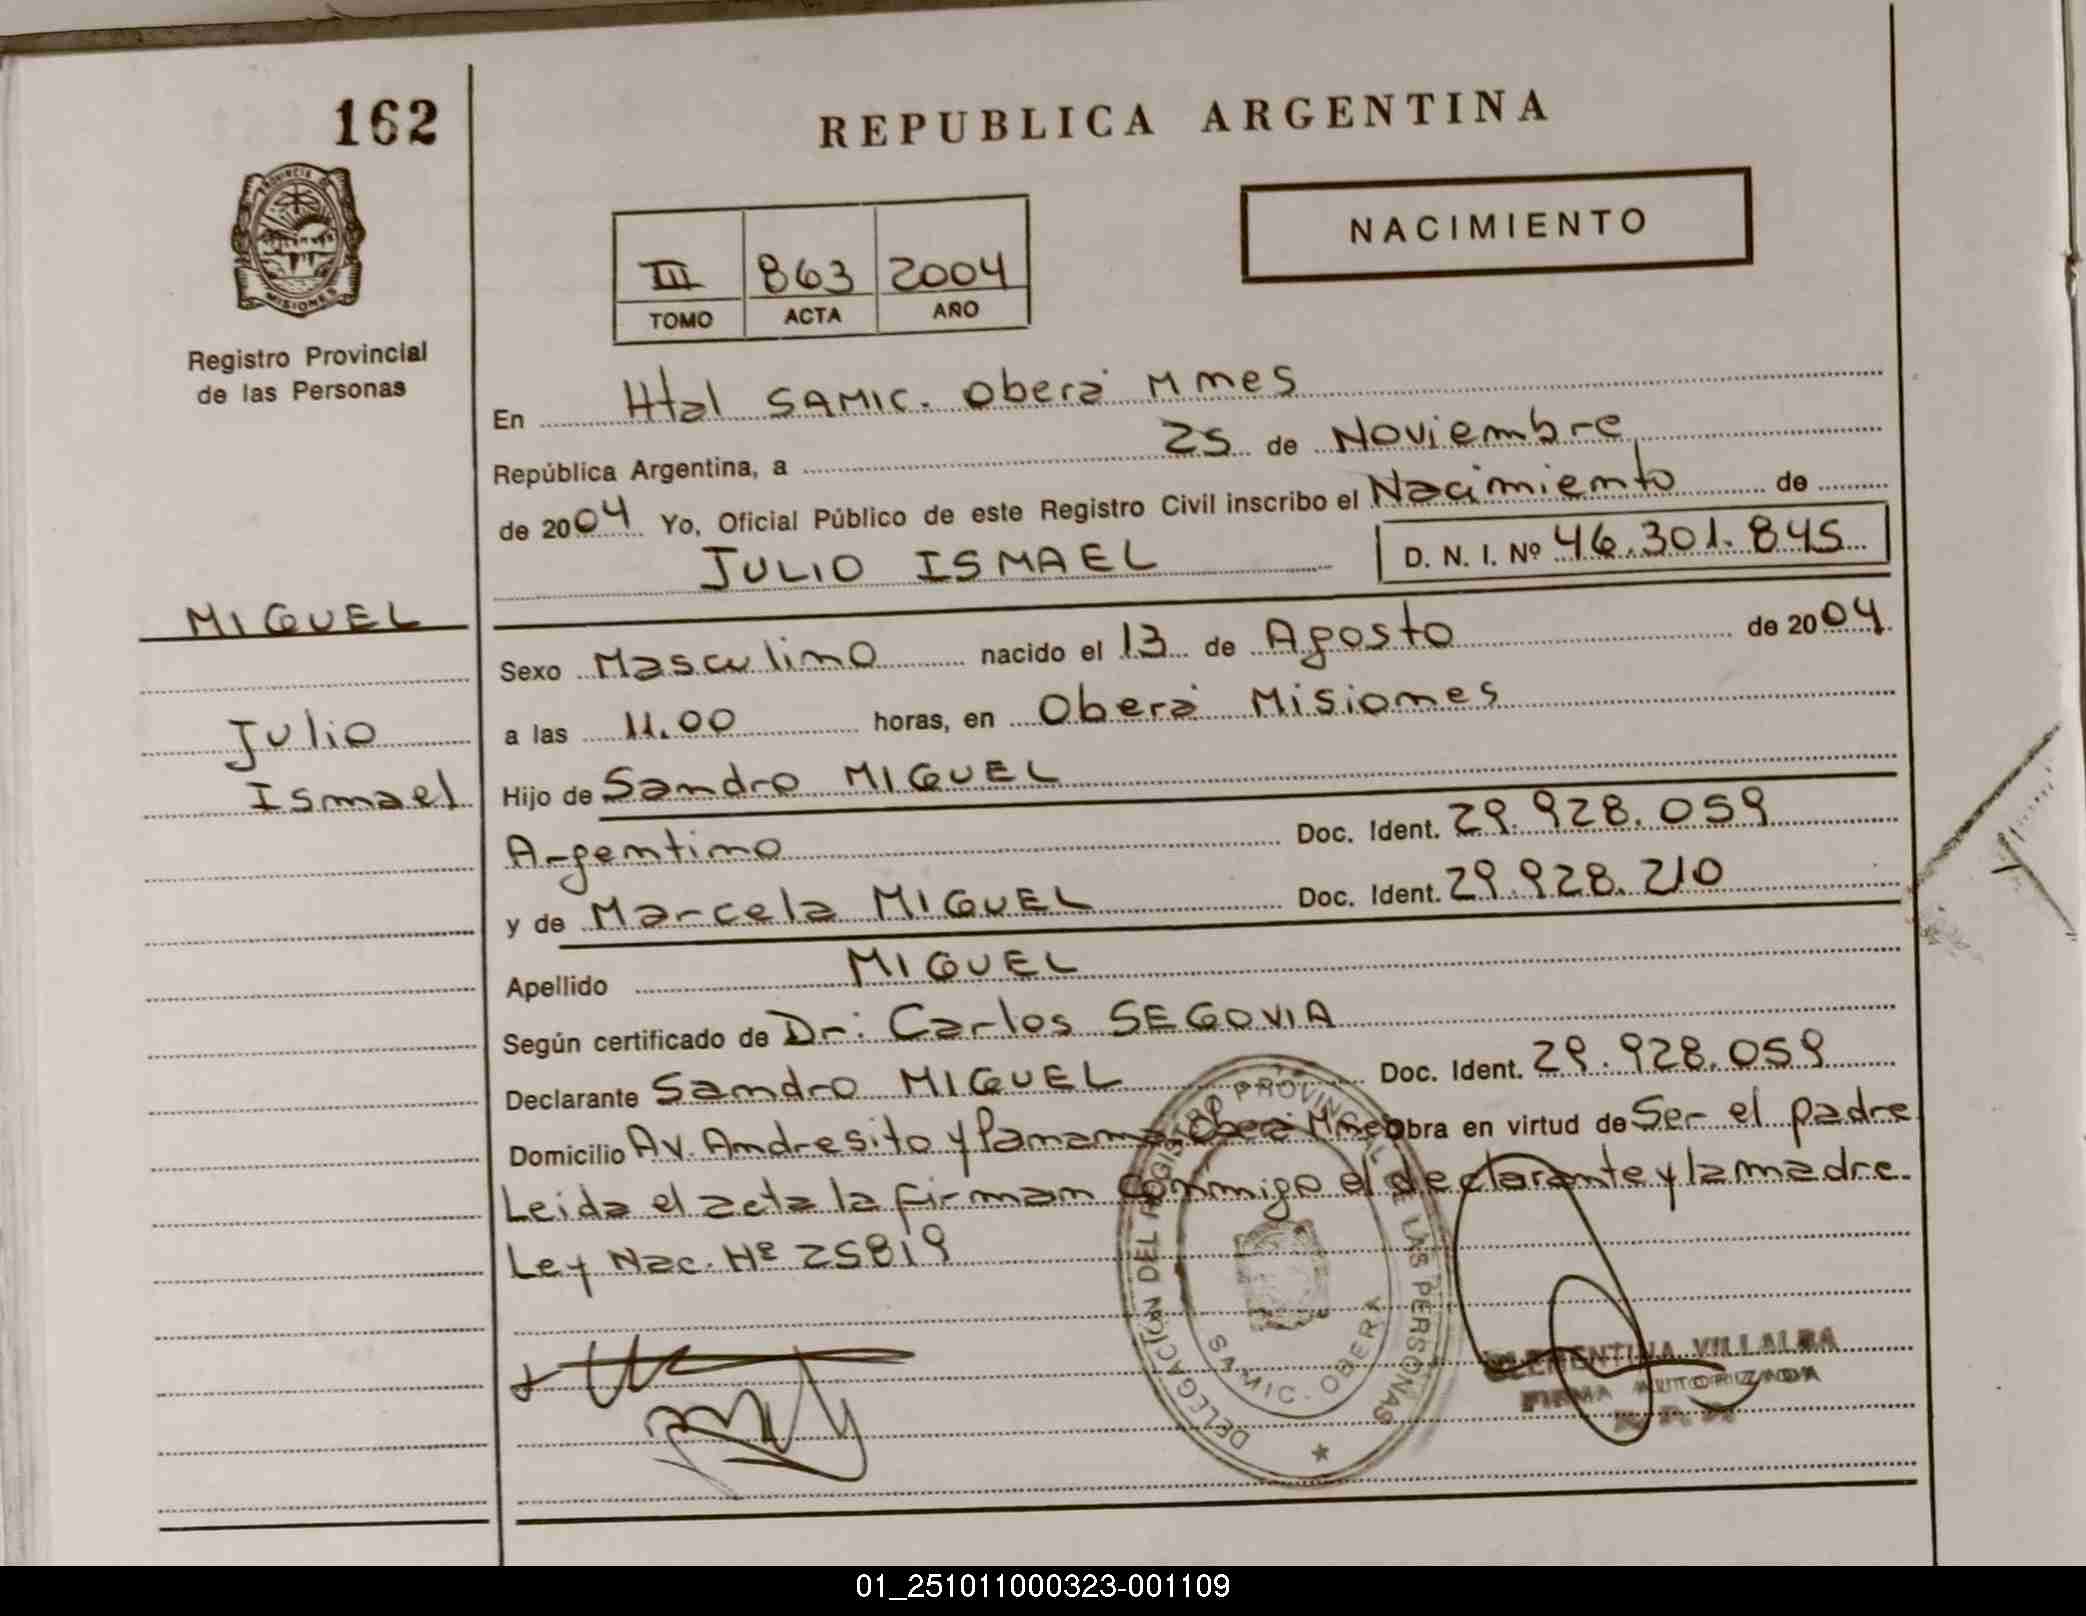 162
REPUBLICA ARGENTINA
PROVINCIA DE
MISIONES
NACIMIENTO
III 863 2004
TOMO ACTA AÑO
Registro Provincial
de las Personas
En Htal SAMIC. Oberá Mnes
República Argentina, a 25 de Noviembre
de 2004 Yo, Oficial Público de este Registro Civil inscribo el Nacimiento de
JULIO ISMAEL D. N. I. Nº 46.301.845
MIGUEL
Julio
Ismael
Sexo Masculino nacido el 13 de Agosto de 2004
a las 11.00 horas, en Oberá Misiones
Hijo de Sandro MIGUEL
Argentino Doc. Ident. 29.928.059
y de Marcela MIGUEL Doc. Ident. 29.928.210
Apellido MIGUEL
Según certificado de Dr: Carlos SEGOVIA
Declarante Sandro MIGUEL Doc. Ident. 29.928.059
Domicilio Av. Andresito y Panamá Oberá Mnes Obra en virtud de Ser el padre
Leida el acta la firman conmigo el declarante y la madre.
Ley Nac. Nº 25819
DELEGACIÓN DEL REGISTRO PROVINCIAL DE LAS PERSONAS
SAMIC. OBERA
CLEMENTINA VILLALBA
FIRMA AUTORIZADA
01_251011000323-001109